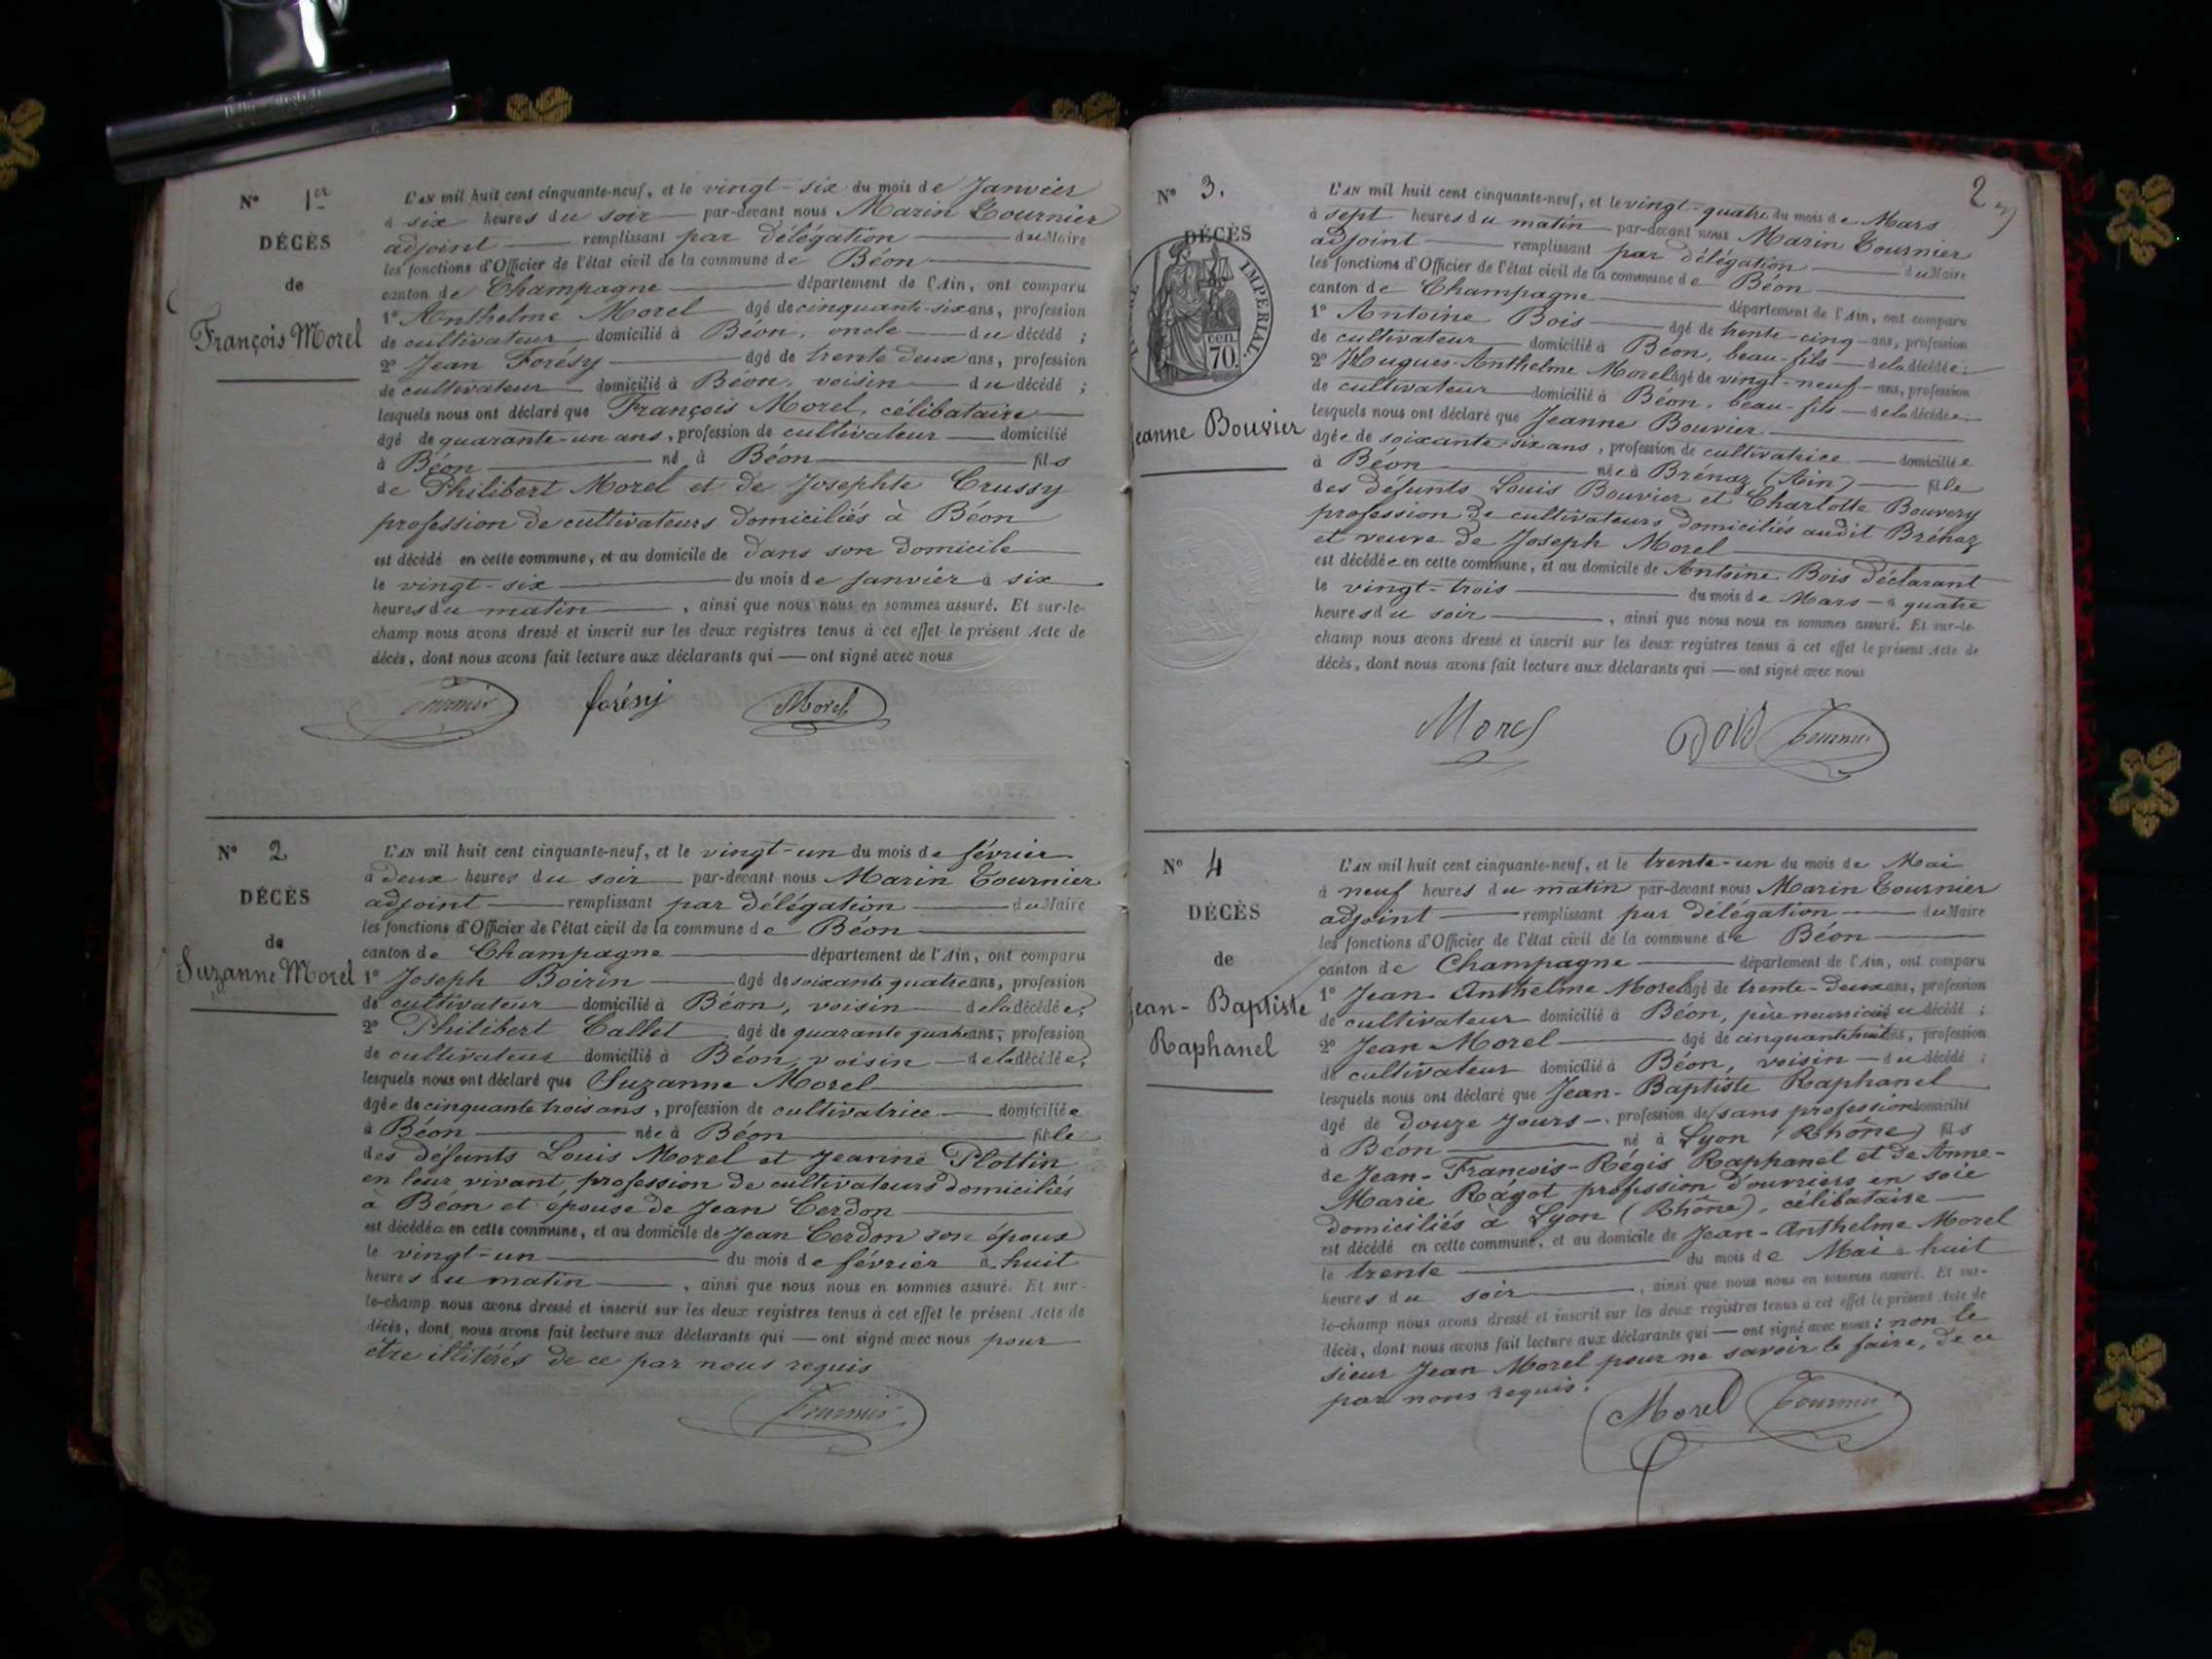 N° 1er
DÉCÈS
de
François Morel
L'AN mil huit cent cinquante-neuf, et le vingt-six du mois de Janvier
à six heures du soir par-devant nous Marin Tournier
adjoint remplissant par délégation du Maire
les fonctions d'Officier de l'état civil de la commune de Béon
canton de Champagne département de l'Ain, ont comparu
1° Anthelme Morel âgé de cinquante-six ans, profession
de cultivateur domicilié à Béon, oncle du décédé ;
2° Jean Forésy âgé de trente deux ans, profession
de cultivateur domicilié à Béon, voisin du décédé ;
lesquels nous ont déclaré que François Morel, célibataire
âgé de quarante-un ans, profession de cultivateur domicilié
à Béon né à Béon fils
de Philibert Morel et de Josephte Crussy
profession de cultivateurs domiciliés à Béon
est décédé en cette commune, et au domicile de dans son domicile
le vingt-six du mois de janvier à six
heures du matin, ainsi que nous nous en sommes assuré. Et sur-le-
champ nous avons dressé et inscrit sur les deux registres tenus à cet effet le présent Acte de
décès, dont nous avons fait lecture aux déclarants qui — ont signé avec nous
Tournier forésy Morel
N° 2
DÉCÈS
de
Suzanne Morel
L'AN mil huit cent cinquante-neuf, et le vingt-un du mois de février
à deux heures du soir par-devant nous Marin Tournier
adjoint remplissant par délégation du Maire
les fonctions d'Officier de l'état civil de la commune de Béon
canton de Champagne département de l'Ain, ont comparu
1° Joseph Boirin âgé de soixante quatre ans, profession
de cultivateur domicilié à Béon, voisin de la décédée;
2° Philibert Callet âgé de quarante quatre ans, profession
de cultivateur domicilié à Béon, voisin de la décédée;
lesquels nous ont déclaré que Suzanne Morel
âgée de cinquante trois ans, profession de cultivatrice domiciliée
à Béon née à Béon fille
des défunts Louis Morel et Jeanne Plottin
en leur vivant, profession de cultivateurs domiciliés
à Béon et épouse de Jean Cerdon
est décédée en cette commune, et au domicile de Jean Cerdon son époux
le vingt-un du mois de février à huit
heures du matin, ainsi que nous nous en sommes assuré. Et sur-
le-champ nous avons dressé et inscrit sur les deux registres tenus à cet effet le présent Acte de
décès, dont nous avons fait lecture aux déclarants qui — ont signé avec nous pour
être illitérés de ce par nous requis
Tournier
2
N° 3.
DÉCÈS
TIMBRE IMPERIAL
70 cen.
Jeanne Bouvier
L'AN mil huit cent cinquante-neuf, et le vingt-quatre du mois de Mars
à sept heures du matin par-devant nous Marin Tournier
adjoint remplissant par délégation du Maire
les fonctions d'Officier de l'état civil de la commune de Béon
canton de Champagne département de l'Ain, ont comparu
1° Antoine Bois âgé de trente-cinq ans, profession
de cultivateur domicilié à Béon, beau-fils de la décédée;
2° Hugues-Anthelme Morel âgé de vingt-neuf ans, profession
de cultivateur domicilié à Béon, beau-fils de la décédée;
lesquels nous ont déclaré que Jeanne Bouvier
âgée de soixante-six ans, profession de cultivatrice domiciliée
à Béon née à Brénaz (Ain) fille
des défunts Louis Bouvier et Charlotte Bouvery
profession de cultivateurs domiciliés audit Brénaz
et veuve de Joseph Morel
est décédée en cette commune, et au domicile de Antoine Bois déclarant
le vingt-trois du mois de Mars à quatre
heures du soir, ainsi que nous nous en sommes assuré. Et sur-le-
champ nous avons dressé et inscrit sur les deux registres tenus à cet effet le présent Acte de
décès, dont nous avons fait lecture aux déclarants qui — ont signé avec nous
Morel Bois Tournier
N° 4
DÉCÈS
de
Jean-Baptiste
Raphanel
L'AN mil huit cent cinquante-neuf, et le trente-un du mois de Mai
à neuf heures du matin par-devant nous Marin Tournier
adjoint remplissant par délégation du Maire
les fonctions d'Officier de l'état civil de la commune de Béon
canton de Champagne département de l'Ain, ont comparu
1° Jean Anthelme Morel âgé de trente-deux ans, profession
de cultivateur domicilié à Béon, père nourricier du décédé ;
2° Jean Morel âgé de cinquante huit ans, profession
de cultivateur domicilié à Béon, voisin du décédé ;
lesquels nous ont déclaré que Jean-Baptiste Raphanel
âgé de douze jours, profession de sans profession domicilié
à Béon né à Lyon (Rhône) fils
de Jean-François-Régis Raphanel et de Anne-
Marie Rágot profession d'ouvriers en soie
domiciliés à Lyon (Rhône), célibataire
est décédé en cette commune, et au domicile de Jean-Anthelme Morel
le trente du mois de Mai à huit
heures du soir, ainsi que nous nous en sommes assuré. Et sur-
le-champ nous avons dressé et inscrit sur les deux registres tenus à cet effet le présent Acte de
décès, dont nous avons fait lecture aux déclarants qui — ont signé avec nous; non le
sieur Jean Morel pour ne savoir le faire, de ce
par nous requis.
Morel Tournier